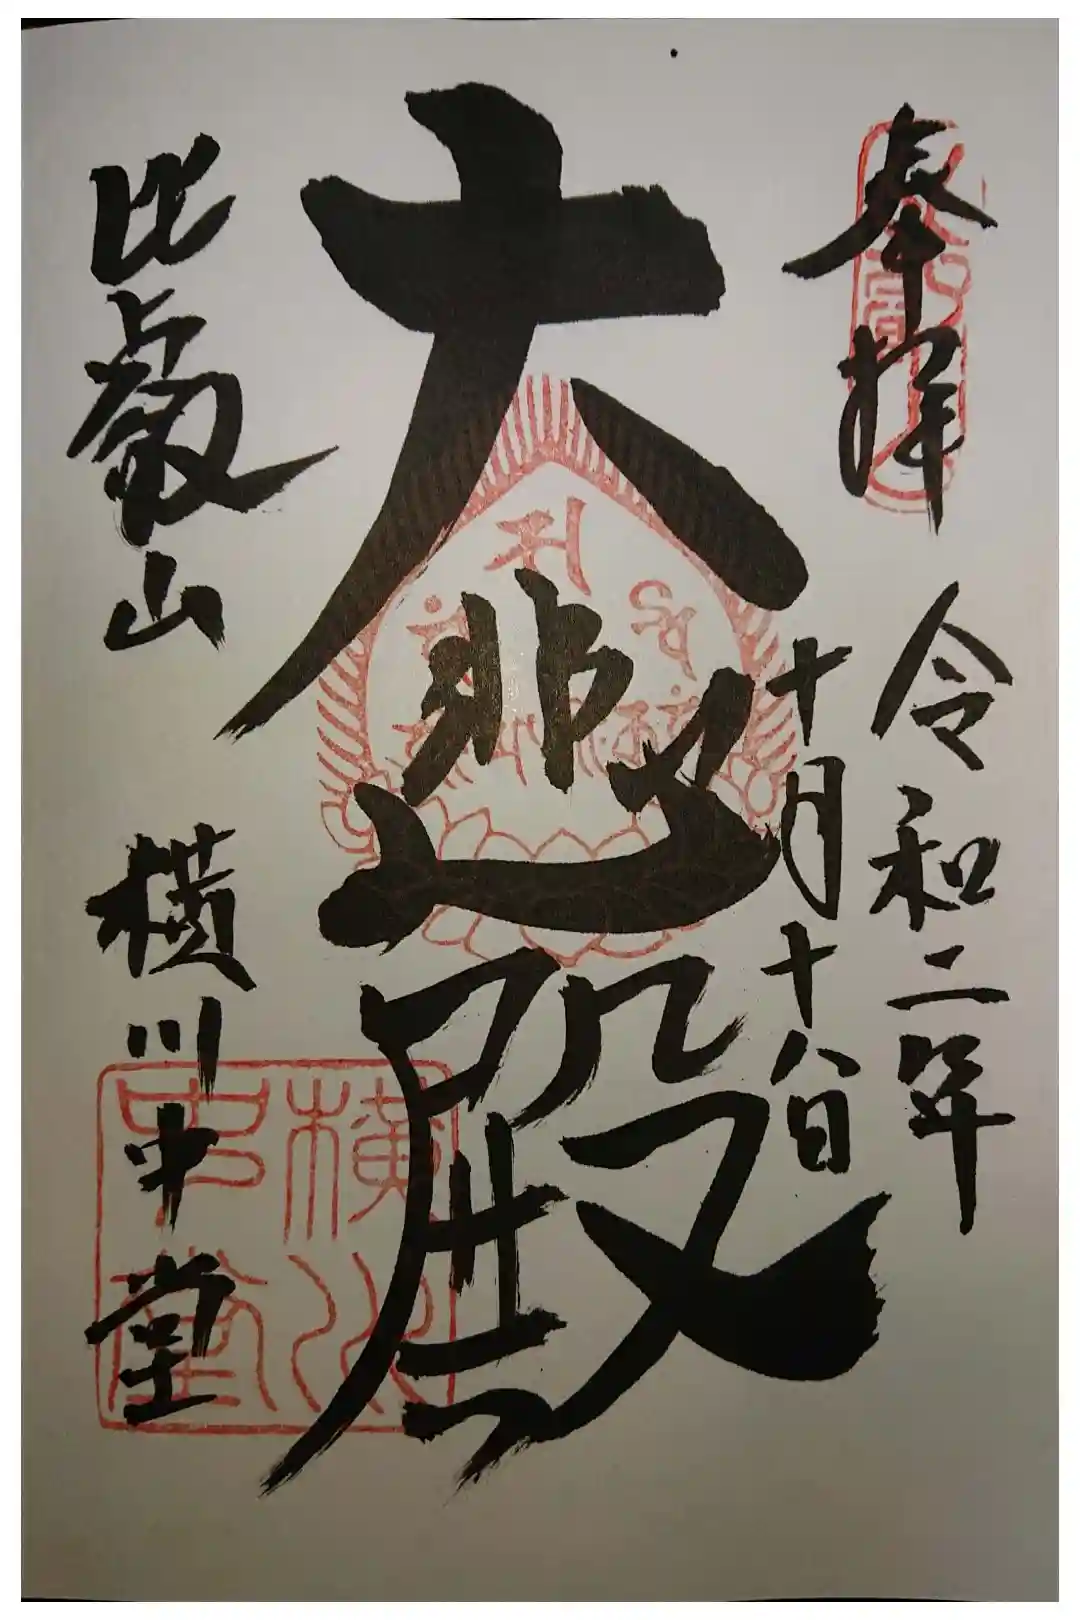 奉拝
令和二年
十月十八日
大悲殿
比叡山 横川中堂
横川
中堂